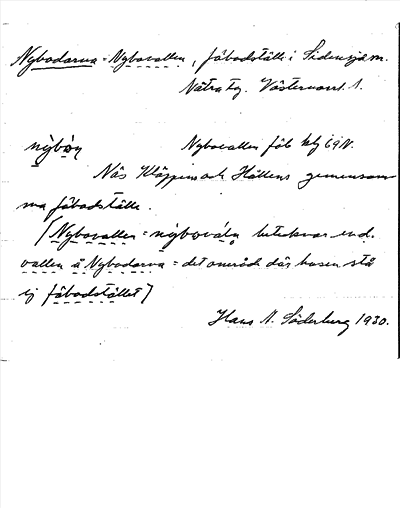 Nybodarna = Nybovallen, fäbodställe i Sidensjö sn.
Nätra tg. Västernorrl. l.
nỳbòn Nybovallen fäb
Näs Kläppens och Hällens gemensam
ma fäbodställe.
[Nybovallen = nỳbovàln betecknar end.
vallen å Nybodarna = det område där husen stå
ej fäbodstället]
Hans N. Söderberg 1930.